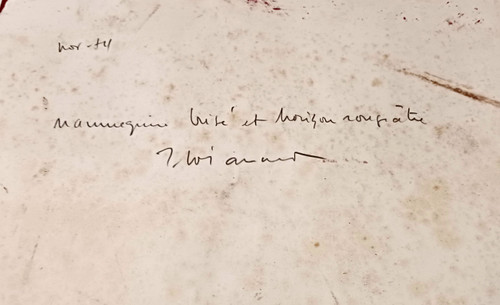 nov - 54
mannequin brisé et horizon rougeâtre